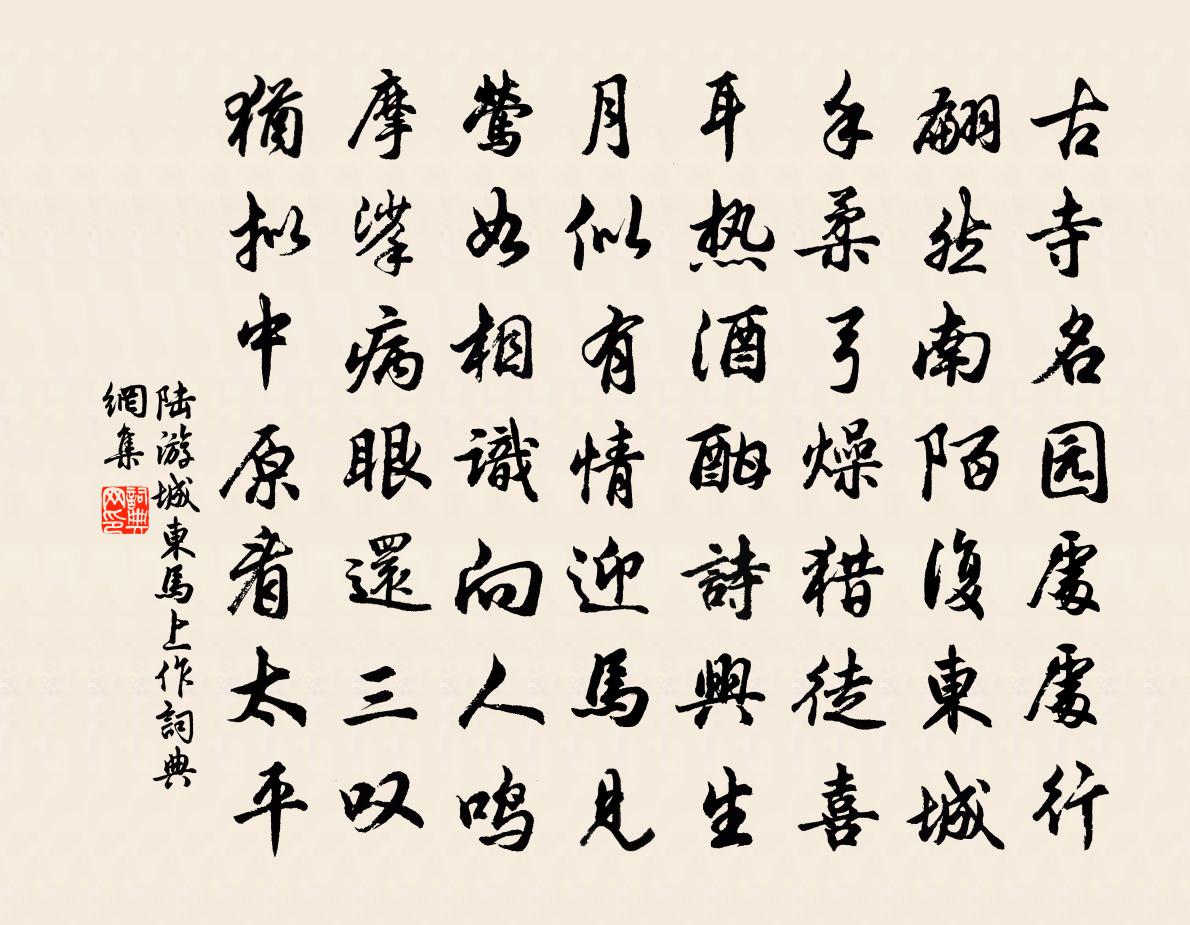 古寺名园處處行
翩然南陌復東城
手柔弓燥猎徒喜
耳热酒酣詩興生
月似有情迎馬見
莺如相識向人鸣
摩挲病眼還三叹
猶拟中原看太平
陆游城東馬上作詞典
網集
詞典
网印